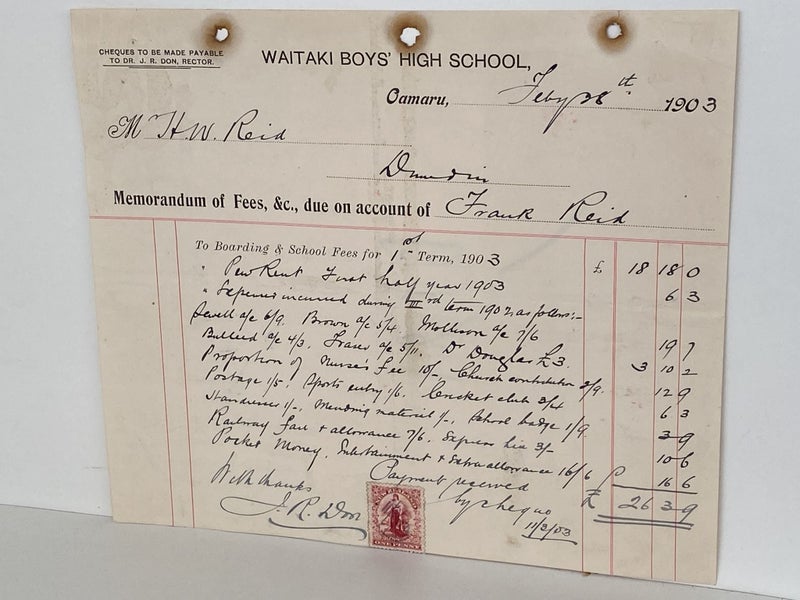 CHEQUES TO BE MADE PAYABLE
TO DR. J. R. DON, RECTOR.
WAITAKI BOYS' HIGH SCHOOL,
Oamaru, Feby 28th 1903
Mr H.W. Reid
Dunedin
Memorandum of Fees, &c., due on account of Frank Reid
To Boarding & School Fees for 1st Term, 1903 £ 18 18 0
" Pew Rent First half year 1903 6 3
" Expenses incurred during IIIrd term 1902 as follows:-
Sewell a/c 6/9. Brown a/c 5/4. Mollison a/c 7/6 19 7
Bulleid a/c 4/3. Fraser a/c 5/11. Dr Douglas £3. 3 10 2
Proportion of Nurse's Fee 10/- Church contribution 2/9. 12 9
Postage 1/5. Sports entry 1/6. Cricket club 3/4 6 3
1/-, Mending material 1/-, School badge 1/9. 3 9
Railway fare & allowance 7/6. Express 3/- 10 6
Pocket Money, Entertainment & Extra allowance 16/6 16 6
£ 26 3 9
With thanks
Payment received
by cheque
11/3/03
J. R. Don
ONE PENNY